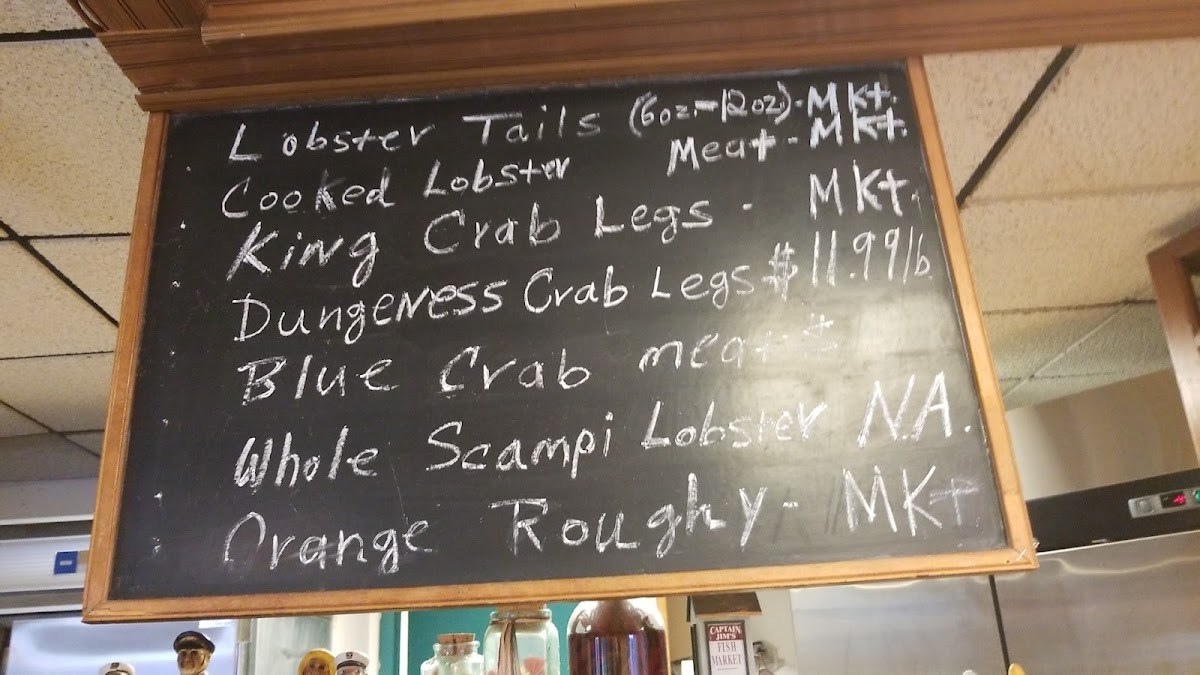 Lobster Tails (6oz.-12oz). MKt.
Cooked Lobster Meat - MKt.
King Crab Legs - MKt.
Dungeness Crab Legs $11.99lb
Blue Crab meat
Whole Scampi Lobster N.A.
Orange Roughy - MKt
CAPTAIN
JIM'S
FISH
MARKET